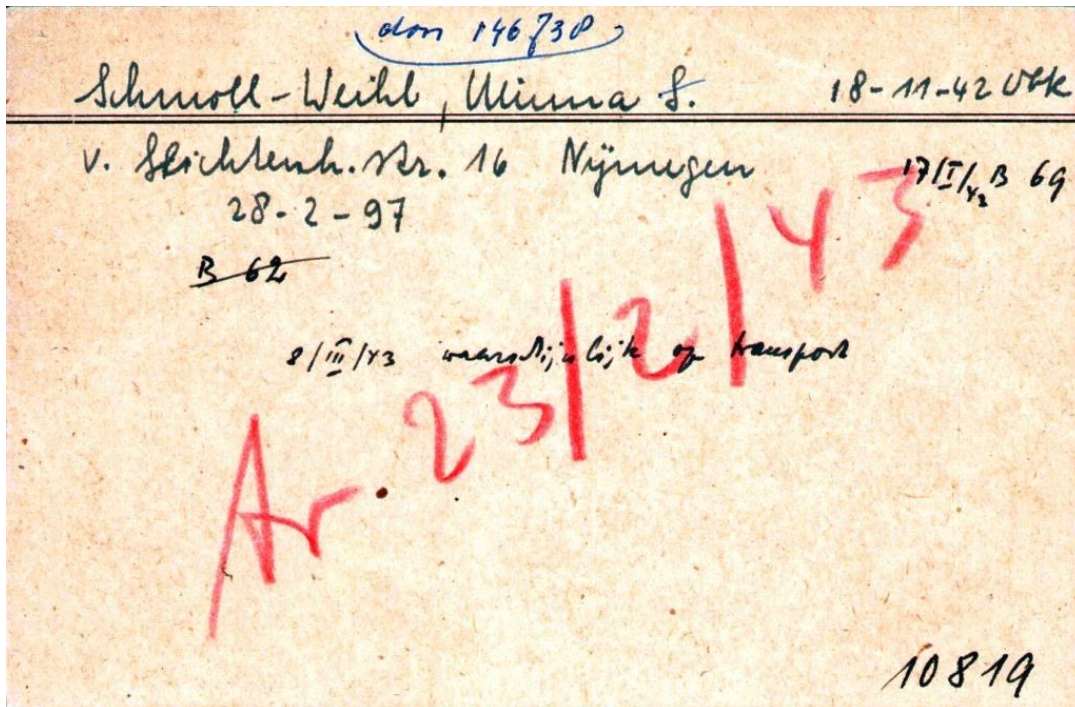 don 146738
Schmoll-Weihl, Minna S. 18-11-42 Vbk
v. Slichtenh. str. 16 Nijmegen 17/I/43 B 69
28-2-97
B 62
8/III/43 waarschijnlijk op transport
Ar. 23/2/43
10819